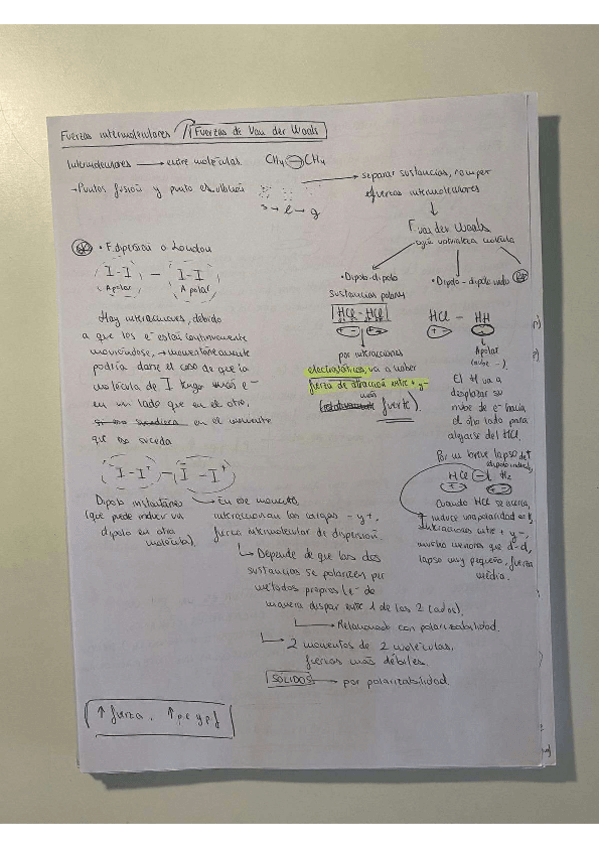 Fuerzas intermoleculares // Fuerzas de Van der Waals
Intermoleculares → entre moléculas CH4 CH4
→ Puntos fusión y punto ebullición
s → l → g
→ separar sustancias, romper
fuerzas intermoleculares
F. van der Waals
según naturaleza molécula
• F. dispersión o London
I-I — I-I
Apolar Apolar
Hay interacciones, debido
a que los e- están continuamente
moviéndose, → momentáneamente
podría darse el caso de que la
molécula de I tenga más e-
en un lado que en el otro,
en el momento
que eso suceda
I-I+ — -I-I+
Dipolo instantáneo
(que puede inducir un
dipolo en otra
molécula).
→ En ese momento
interaccionan las cargas - y +,
fuerza intermolecular de dispersión.
→ Depende de que las dos
sustancias se polaricen por
métodos propios (e- de
manera dispar entre 1 de los 2 lados).
→ Relacionado con polarizabilidad.
→ 2 momentos de 2 moléculas,
fuerzas más débiles.
SÓLIDOS → por polarizabilidad.
• Dipolo-dipolo
sustancias polares
HCl - HCl
+ - + -
por interacciones
electrostáticas, va a haber
fuerza de atracción entre + y -
(más fuerte).
• Dipolo - dipolo indu
HCl — HH
+ -
Apolar
(nube -)
El H va a
desplazar su
nube de e- hacia
el otro lado para
alejarse del HCl.
Por un breve lapso de t
dipolo inducido
HCl - H2
Cuando HCl se acerca,
induce una polaridad en H2
interacciones entre + y -,
mucho menores que d-d,
lapso muy pequeño, fuerza
media.
↑ fuerza, ↑ p.e y p.f